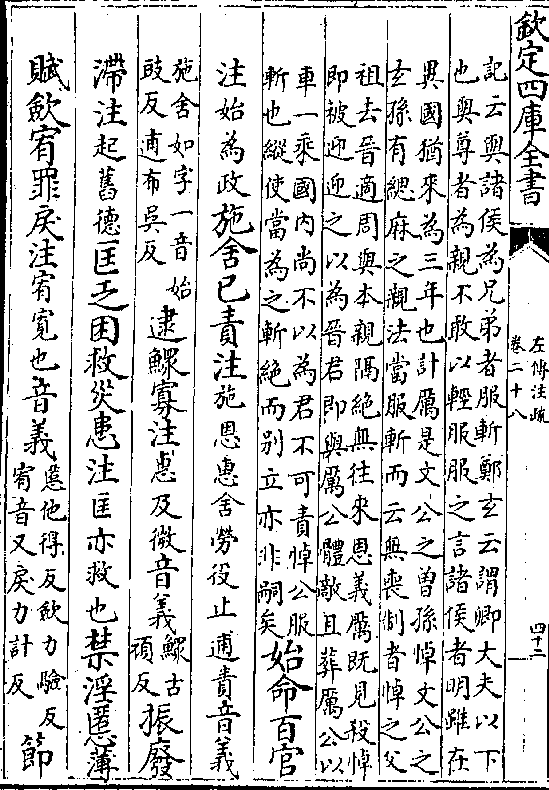 欽定四庫全書
左傳注疏
卷二十八
四十二
記云與諸侯為兄弟者服斬鄭玄云謂卿大夫以下
也與尊者為親不敢以輕服服之言諸侯者明雖在
異國猶來為三年也計厲是文公之曾孫悼文公之
玄孫有緦麻之親法當服斬而云無喪制者悼之父
祖去晉適周與本親隔絶無往來恩義厲既見殺悼
即被迎迎之以為晉君即與厲公體敵且葬厲公以
車一乘國内尚不以為君不可責悼公服
斬也縱使當為之斬絶而别立亦非嗣矣
始命百官
注始為政施舍已責注施恩惠舍勞役止逋責音義
施舍如字一音始
豉反逋布吳反
逮鰥寡注惠及微音義
鰥古
頑反
振廢
滯注起舊德匡乏困救災患注匡亦救也禁淫慝薄
賦斂宥罪戾注宥寛也音義
慝他得反斂力驗反
宥音又戾力計反
節